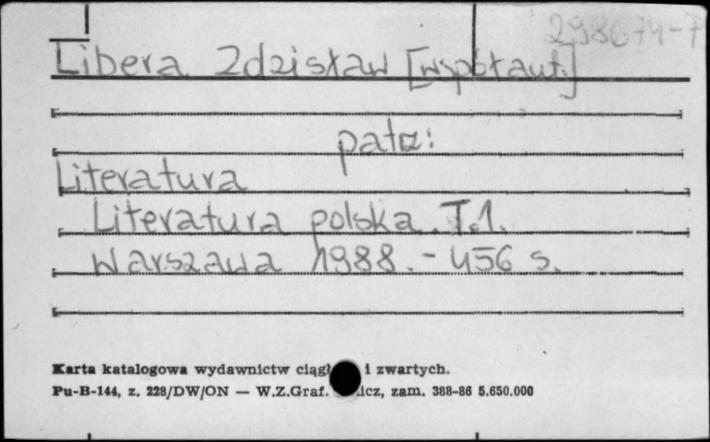 298674-7
Libera Zdzisław [współaut.]
patrz:
Literatura
Literatura polska. T.1.
Warszawa 1988. - 456 s.
Karta katalogowa wydawnictw i zwartych.
Pu-B-144, z. 228/DW/ON — W.Z.Graf. zam. 388-86 5.650.000